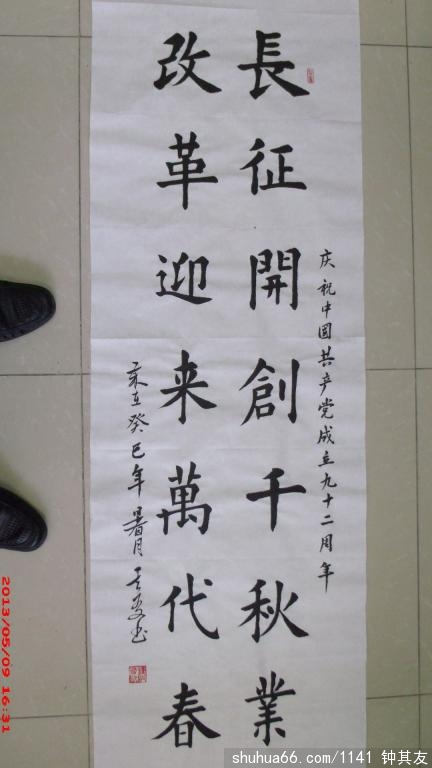 庆祝中国共产党成立九十二周年
長征開創千秋業
改革迎来萬代春
癸巳年暑月
2013/05/09 16:31
shuhua66.com/1141 钟其友